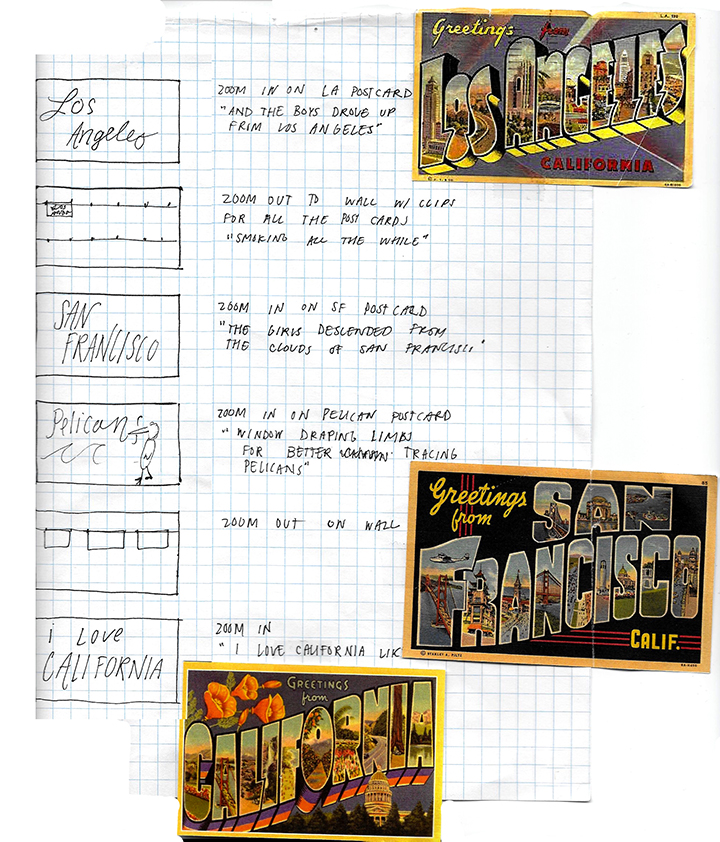 Greetings from
L.A. 130
LOS ANGELES
CALIFORNIA
Los
Angeles
ZOOM IN ON LA POSTCARD
"AND THE BOYS DROVE UP
FRIM LOS ANGELES"
ZOOM OUT TO WALL W/ CLIPS
FOR ALL THE POST CARDS
"SMOKING ALL THE WHILE"
SAN
FRANCISCO
ZOOM IN ON SF POSTCARD
"THE GIRLS DESCENDED FROM
THE CLOUDS OF SAN FRANCISCI"
Pelicans
ZOOM IN ON PELICAN POSTCARD
"WINDOW DRAPING LIMBS
FOR BETTER TRACING
PELICANS"
Greetings
from
SAN
FRANCISCO
CALIF.
ZOOM OUT ON WALL
i LOVE
CALIFORNIA
ZOOM IN
"I LOVE CALIFORNIA LIK
GREETINGS
from
CALIFORNIA